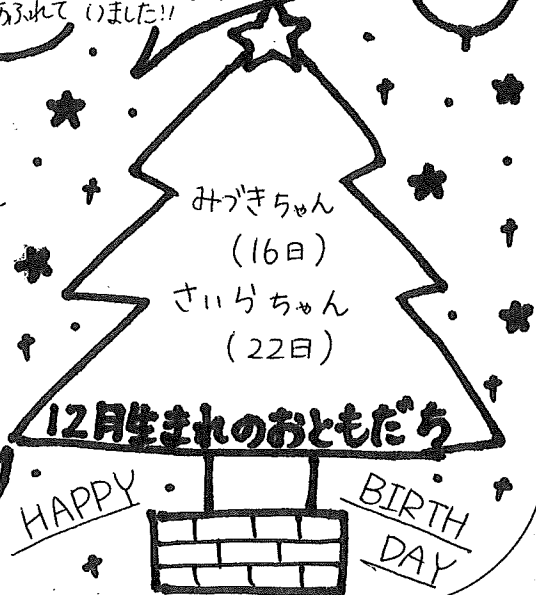 あふれて いました!!
みづきちゃん
(16日)
さいらちゃん
(22日)
12月生まれのおともだち
HAPPY
BIRTH
DAY